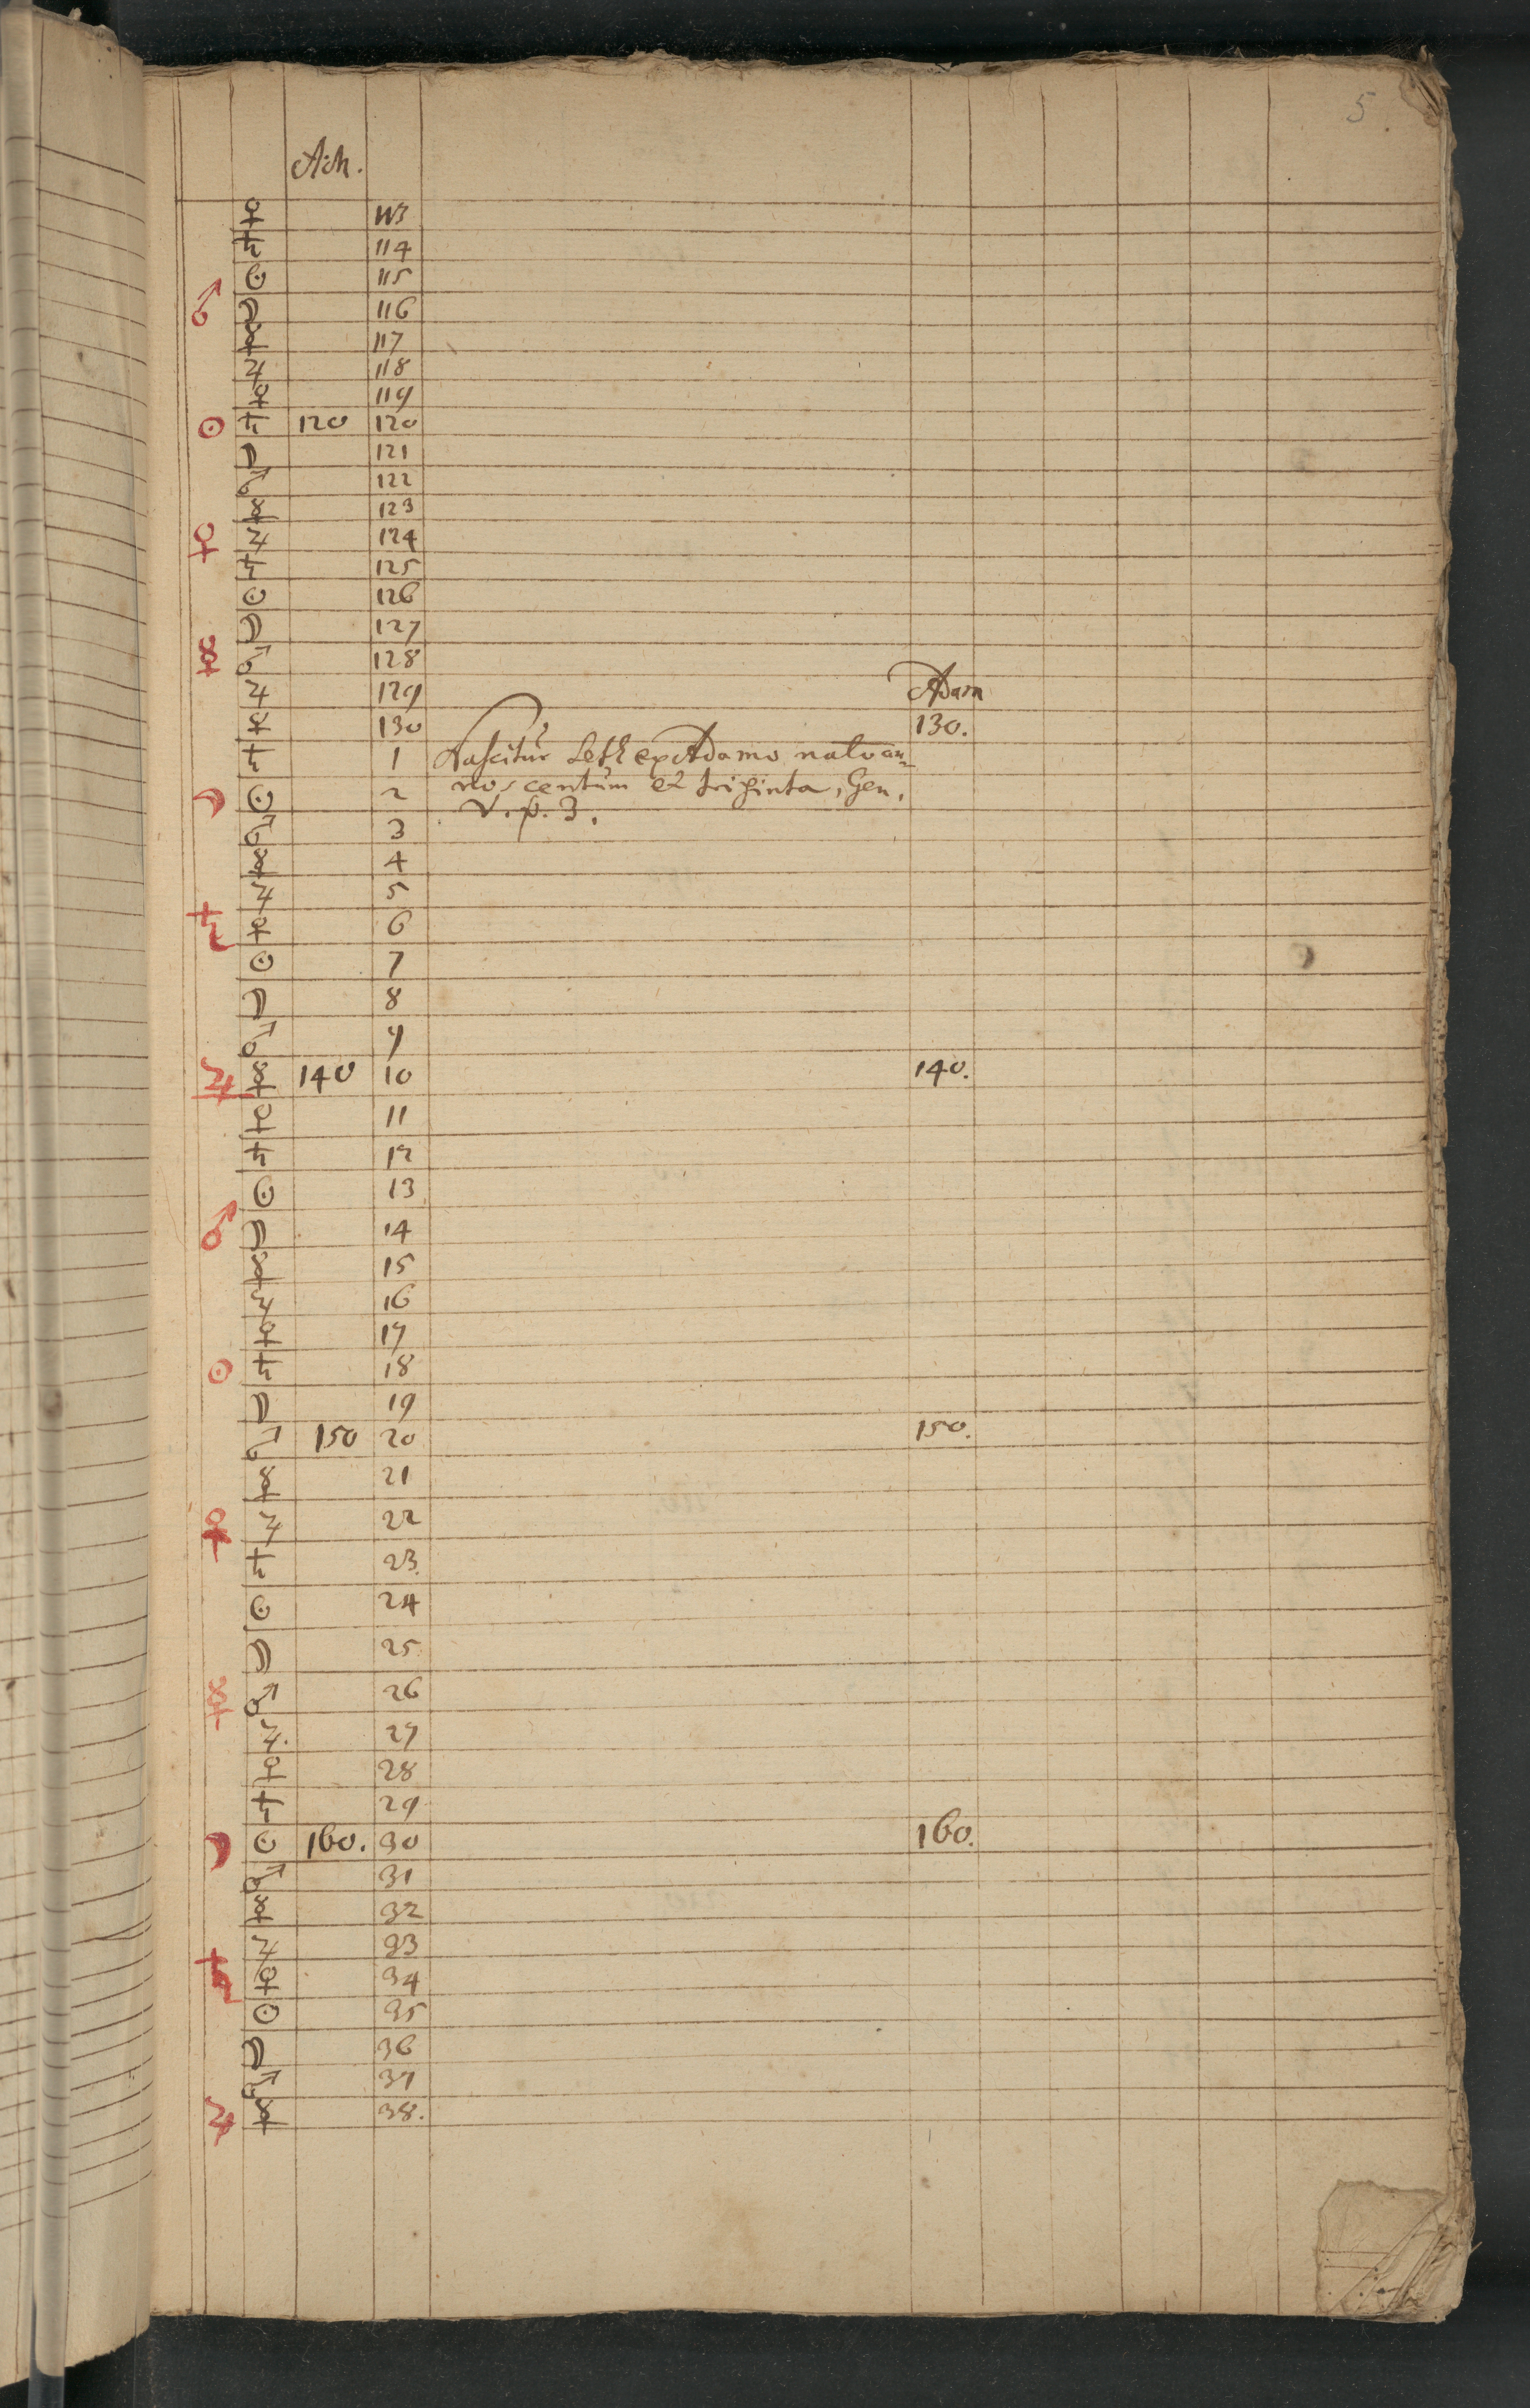 5
A.M.
♀ 113
♄ 114
☉ 115
♂ ☽ 116
☿ 117
♃ 118
♀ 119
☉ ♄ 120 120
☽ 121
♂ 122
☿ 123
♀ ♃ 124
♄ 125
☉ 126
☽ 127
☿ ♂ 128
♃ 129 Adam
♀ 130 130.
♄ 1 Nascitur Seth ex Adamo nato an=
☽ ☉ 2 nos centum et triginta, Gen.
♂ 3 V. v. 3.
☿ 4
♃ 5
♄ ♀ 6
☉ 7
☽ 8
♂ 9
♃ ☿ 140 10 140.
♀ 11
♄ 12
☉ 13
♂ ☽ 14
☿ 15
♃ 16
♀ 17
☉ ♄ 18
☽ 19
♂ 150 20 150.
☿ 21
♀ ♃ 22
♄ 23.
☉ 24
☽ 25
☿ ♂ 26
♃. 27
♀ 28
♄ 29
☽ ☉ 160. 30 160.
♂ 31
☿ 32
♃ 33
♄ ♀ 34
☉ 35
☽ 36
♂ 37
♃ ☿ 38.